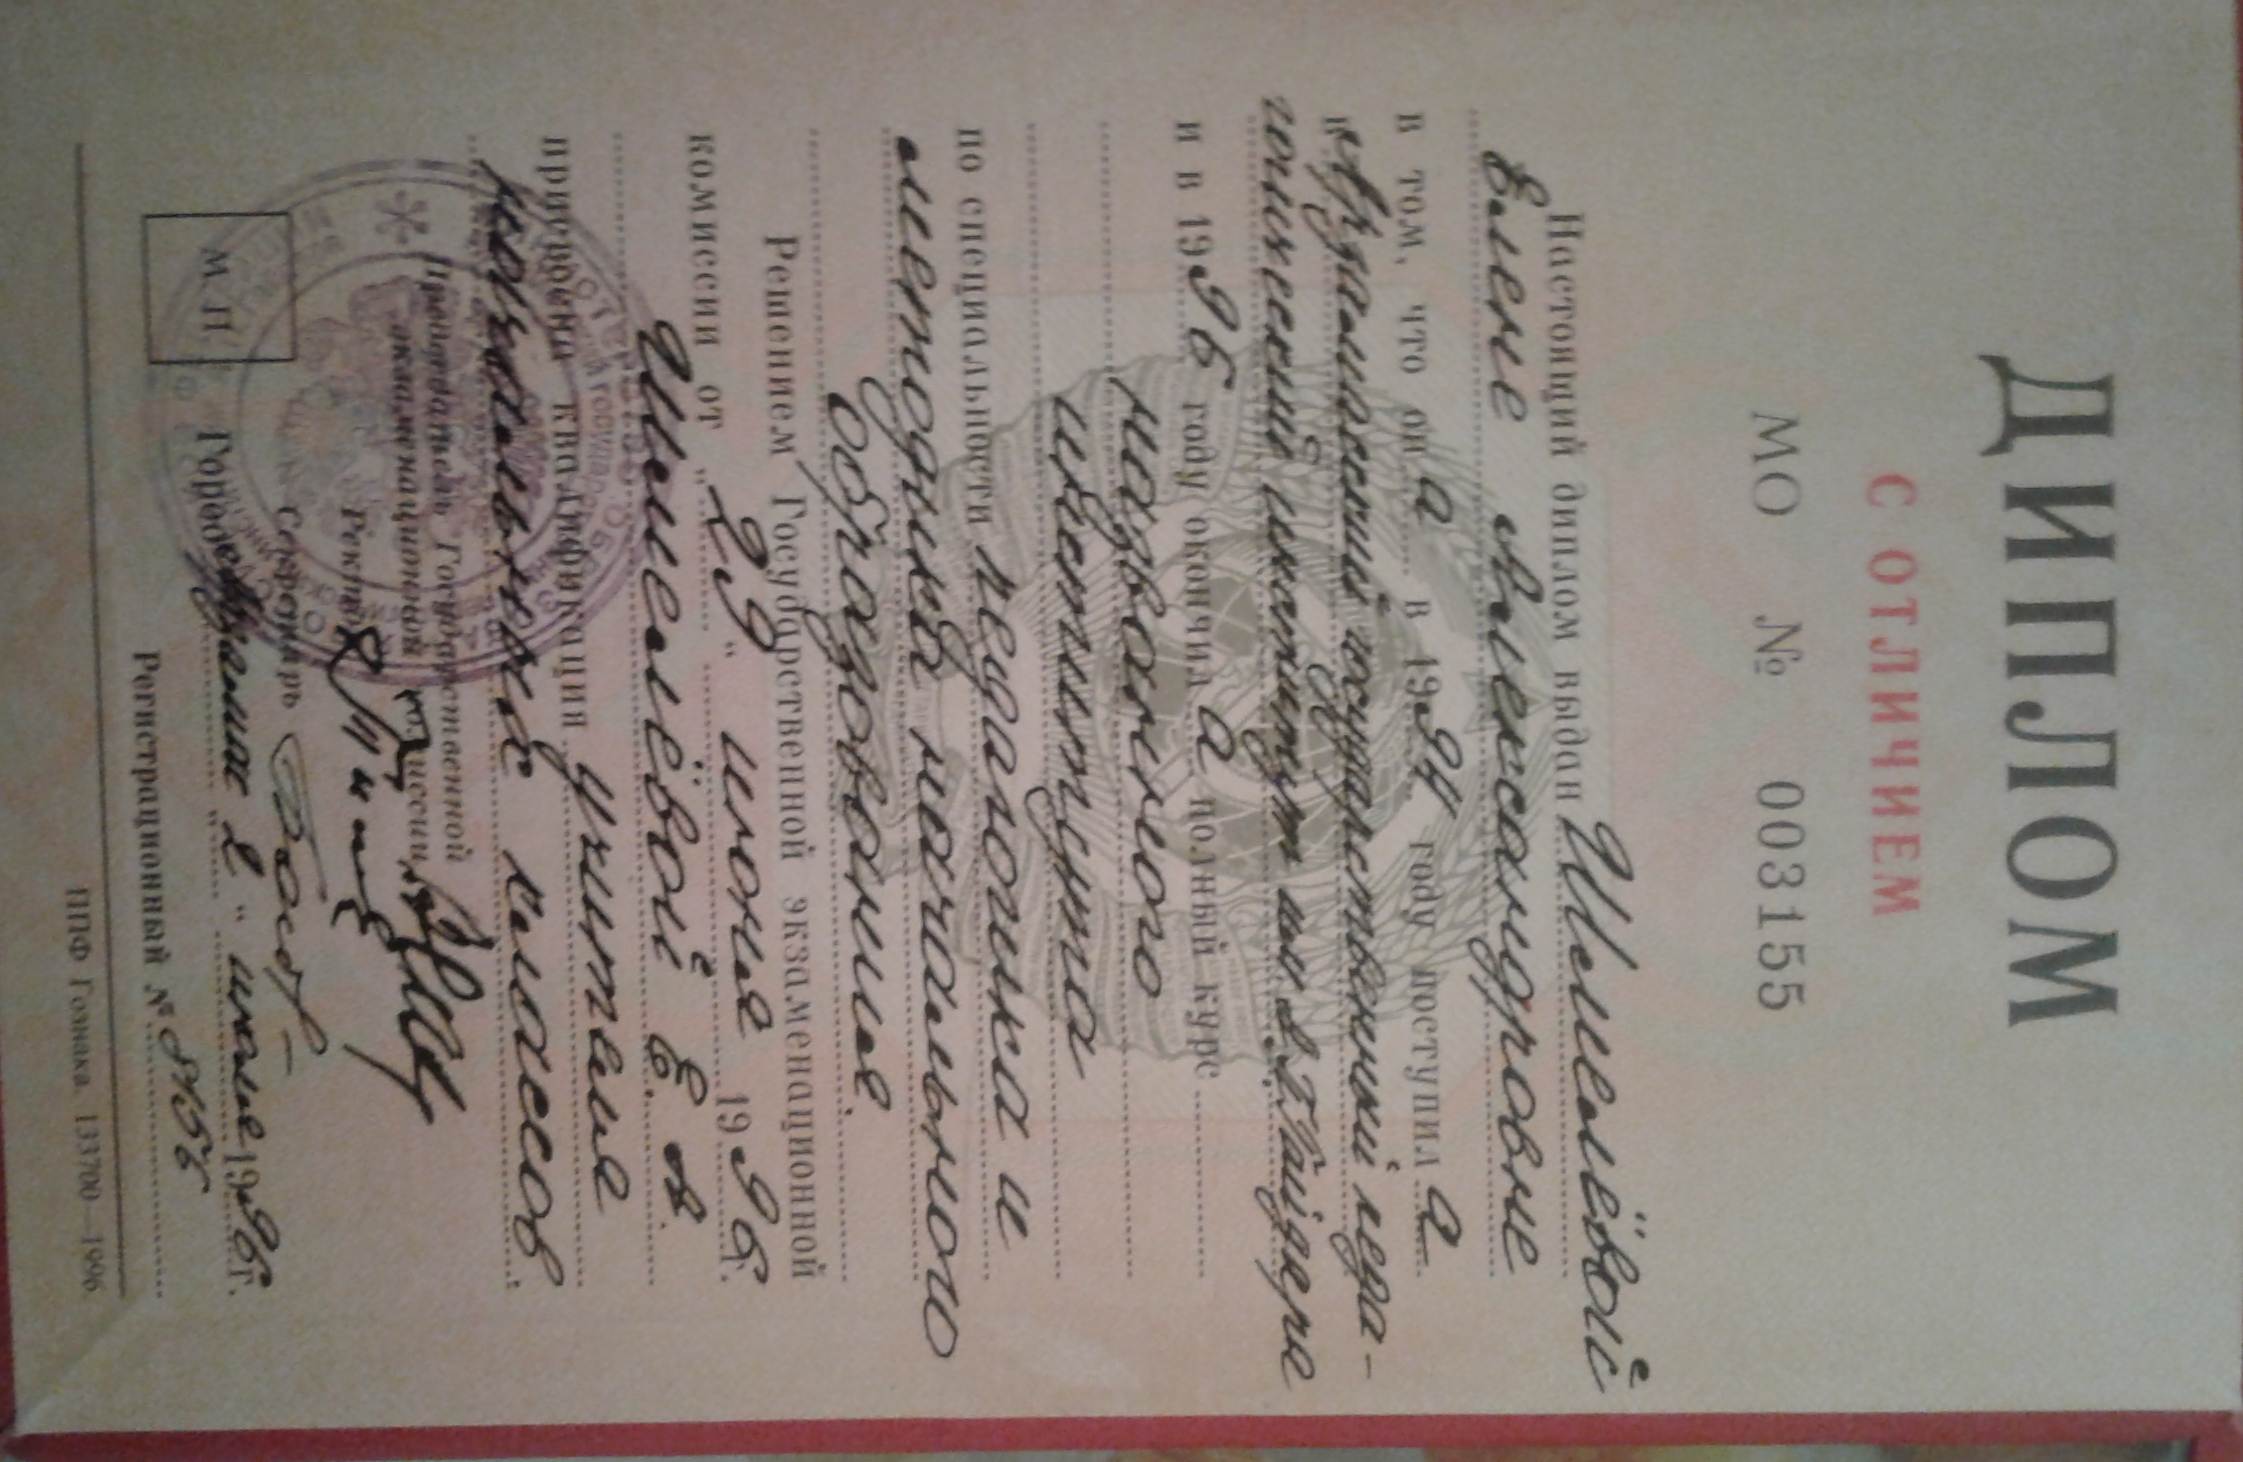 ДИПЛОМ
С ОТЛИЧИЕМ
МО № 003155
Настоящий диплом выдан Шмелёвой
Елене Александровне
в том, что он а в 1994 году поступил а
в Арзамасский государственный педа-
гогический институт им. А.П. Гайдара
и в 1996 году окончил а полный курс
названного
института
по специальности педагогика и
методика начального
образования.
Решением Государственной экзаменационной
комиссии от „29“ июня 1996 г.
Шмелёвой Е. А.
присвоена квалификация учителя
начальных классов.
Председатель Государственной
экзаменационной комиссии
Ректор
М. П. Секретарь
Город Арзамас 2“ июля 1996 г.
Регистрационный № 8156
ППФ Гознака. 133700—1996.